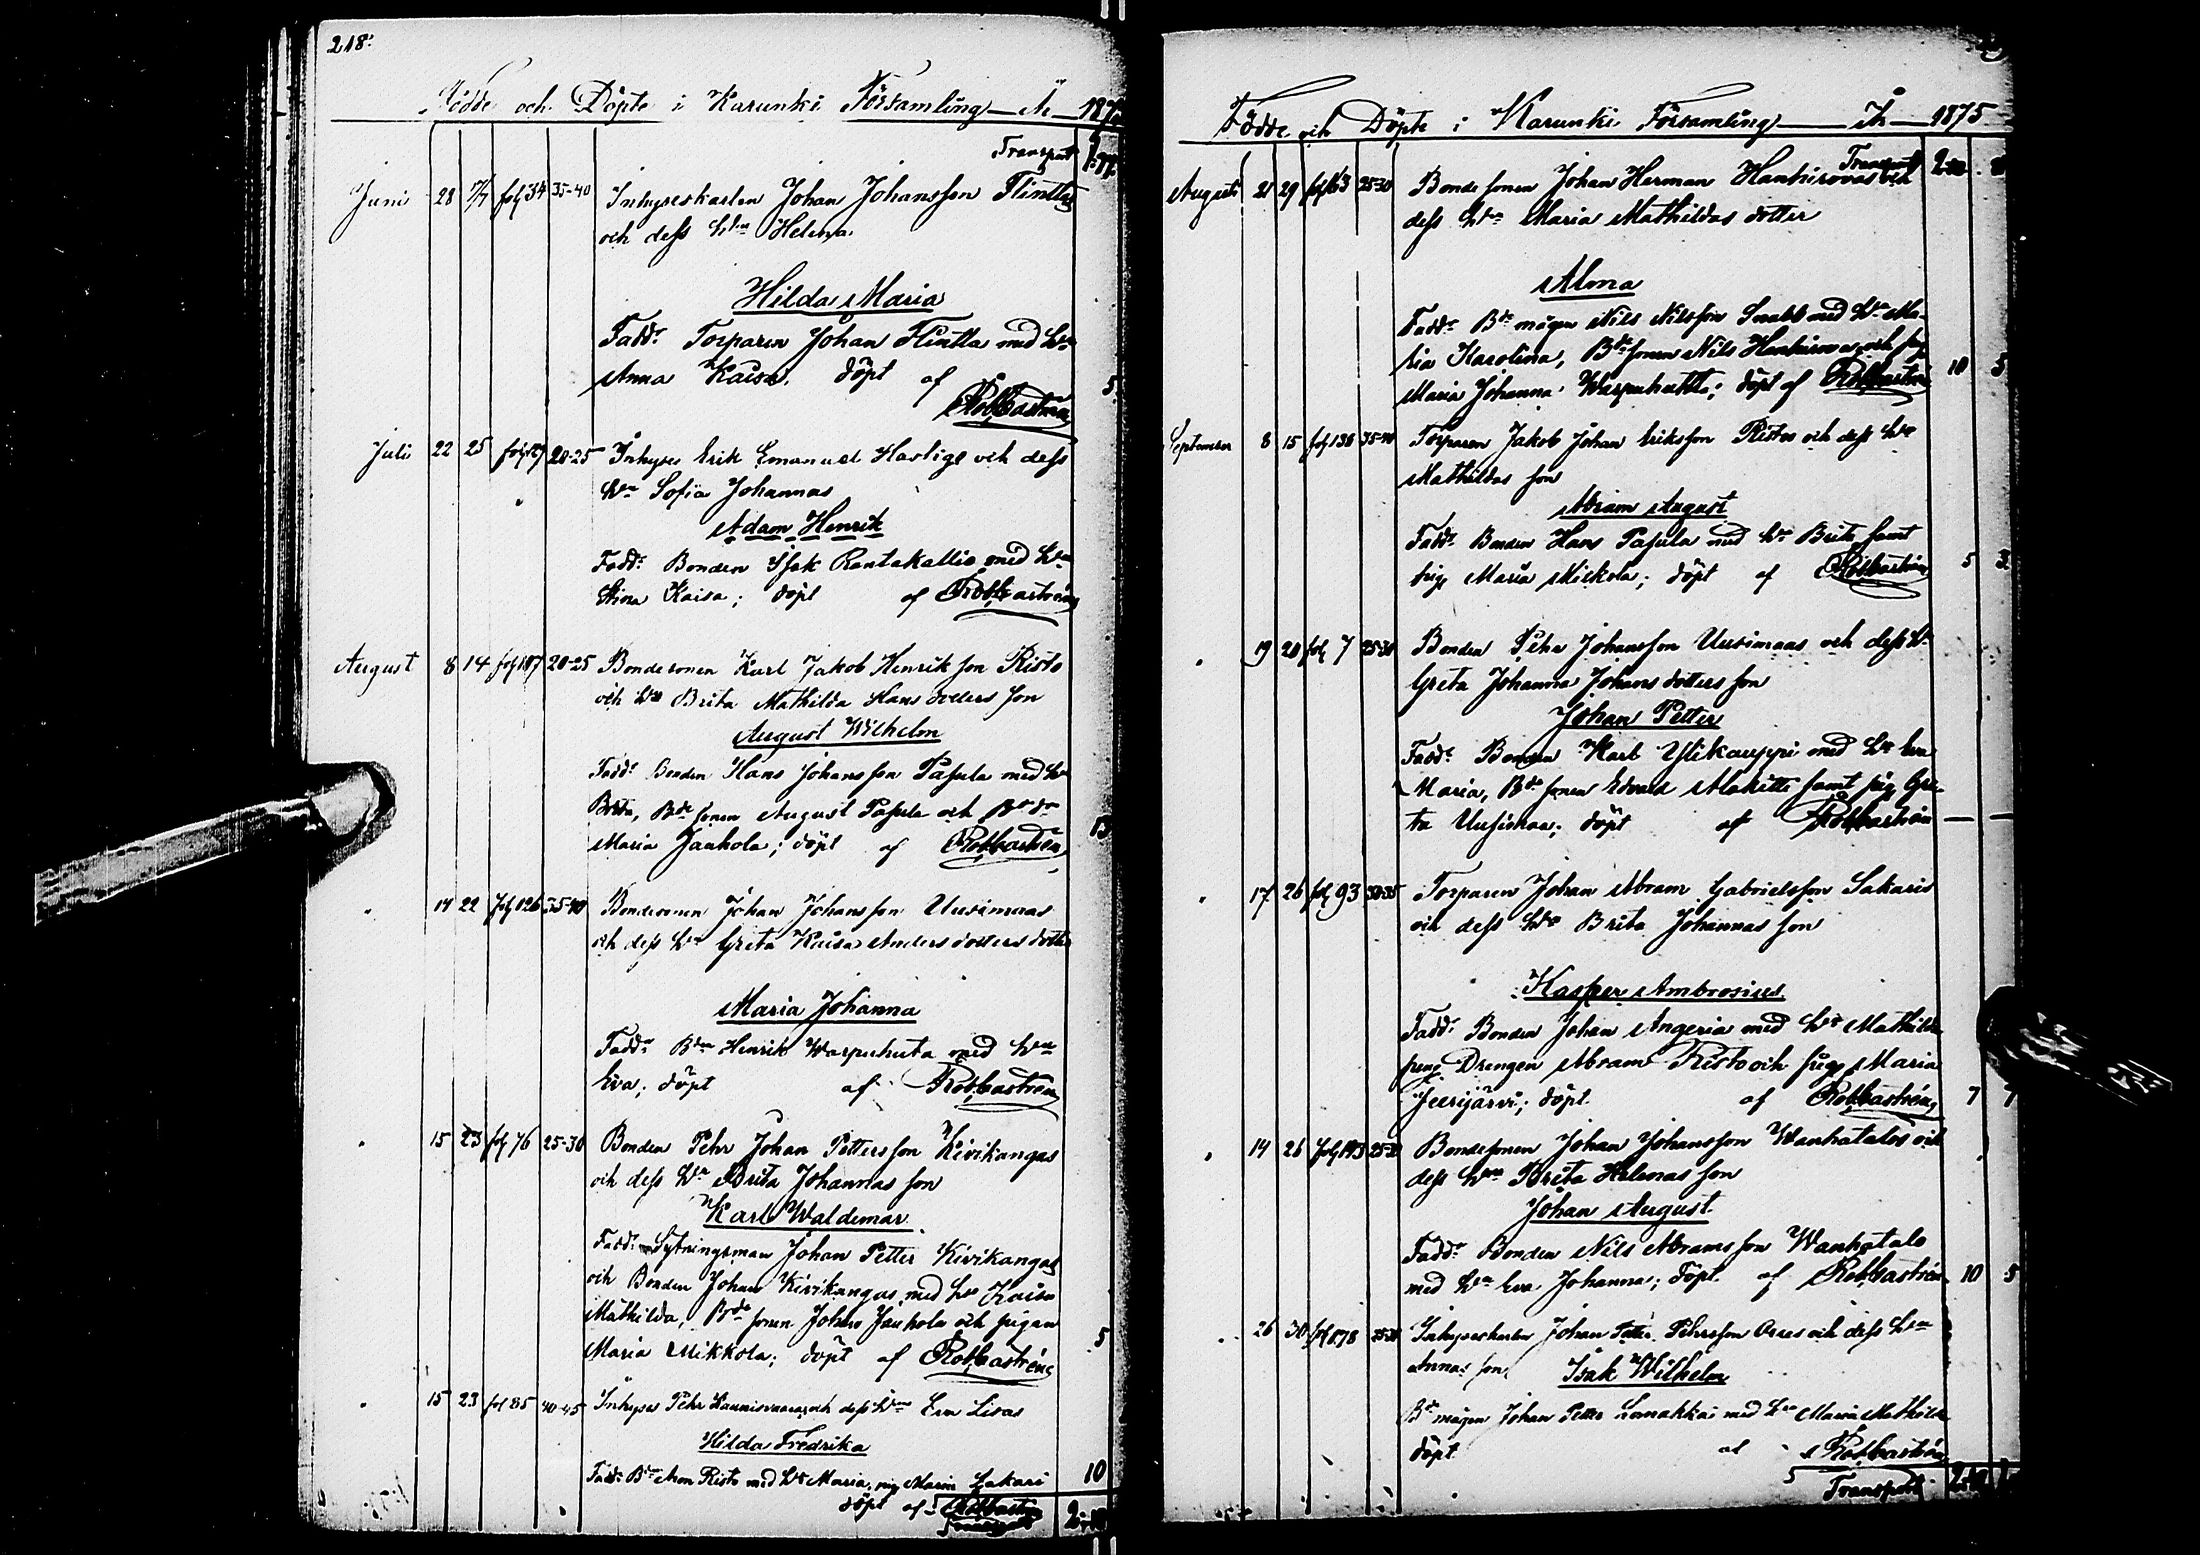 218.
Födde och Döpte i Karunki Församling År 187
Transport
Juni 28 4/7 fol 34 35-40 Inhyseskarlen Johan Johansson Flintta
och dess H:u Helena
Hilda Maria
Fadd: Torparen Johan Flintta med H:u
Anna Kaisa, döpt af 5
Rob. Castrén
Juli 22 25 20-25 Inhyses Erik Emanuel Hastige och dess
H:u Sofia Johannas
Adam Henrik
Fadd: Bonden Isak Rantakallio med H:u
Stina Kaisa; döpt af Rob. Castrén
August 8 14 fol 107 20-25 Bondesonen Karl Jakob Henriksson Risto
och H:u Brita Mathilda Hans dotters son
August Wilhelm
Fadd: Bonden Hans Johansson Pasula med H:u
Brita, B:de sonen August Pasula och B:de d:r
Maria Jauhola; döpt af Rob. Castrén 15
14 22 fol 126 35-40 Bondesonen Johan Johansson Uusimaas
och dess H:u Greta Kaisa Anders dotters dotter
Maria Johanna
Fadd: B:den Henrik Warpuhuta med H:u
Eva; döpt af Rob. Castrén
15 23 fol 76 25-30 Bonden Pehr Johan Pettersson Kivikangas
och dess H:u Brita Johannas son
Karl Waldemar
Fadd: Sytningsman Johan Petter Kivikangas
och Bonden Johan Kivikangas med H:u Kaisa
Mathilda, B:de sonen Johan Jauhola och pigan
Maria Mikkola; döpt af Rob. Castrén 5
15 23 fol 85 40-45 Inhyses Pehr Kaunisvaara och dess H:u Eva Lisas
Hilda Fredrika
Fadd: B:den Aron Risto med H:u Maria, pig Maria Lakari 10
döpt af Rob. Castrén
Transport
Födde och Döpte i Karunki Församling År 1875
Transport
Augusti 21 29 fol 63 25-30 Bondesonen Johan Herman Hankirovas och
dess H:u Maria Mathildas dotter
Alma
Fadd: B:de mågen Nils Nilsson Snabb med H:u Ma-
ria Karolina, B:de sonen Nils Hankirova och pig
Maria Johanna Warpuhutta; döpt af Rob. Castrén 10 5
September 8 15 fol 138 35-40 Torparen Jakob Johan Eriksson Ristos och dess H:u
Mathildas son
Abram August
Fadd: Bonden Hans Pasula med H:u Brita samt
pig Maria Mickola; döpt af Rob. Castrén 5 3
19 20 fol 7 25-30 Bonden Pehr Johansson Uusimaas och dess H:u
Greta Johanna Johans dotters son
Johan Petter
Fadd: Bonden Karl Ylikauppi med H:u Eva
Maria, B:de sonen Edvard Makitti samt pig Gre-
ta Uusimaa; döpt af Rob. Castrén
17 26 fol 93 30-35 Torparen Johan Abram Gabrielsson Lakaris
och dess H:u Brita Johannas son
Kasper Ambrosius
Fadd: Bonden Johan Angeria med H:u Mathilda
Drengen Abram Risto och pig Maria
Jeerijärvi; döpt af Rob. Castrén 7 7
14 26 fol 143 Bondesonen Johan Johansson Wanhatalos och
dess H:u Brita Helenas son
Johan August
Fadd: Bonden Nils Abramsson Wanhatalo
med H:u Eva Johanna; döpt af Rob. Castrén 10 5
26 30 fol 178 Inhyseskarlen Johan Petter Pehrsson Orres och dess H:u
Annas son Isak Wilhelm
B:de mågen Johan Petter Lomakka med H:u Maria Mathilda
döpt af Rob. Castrén
Transport